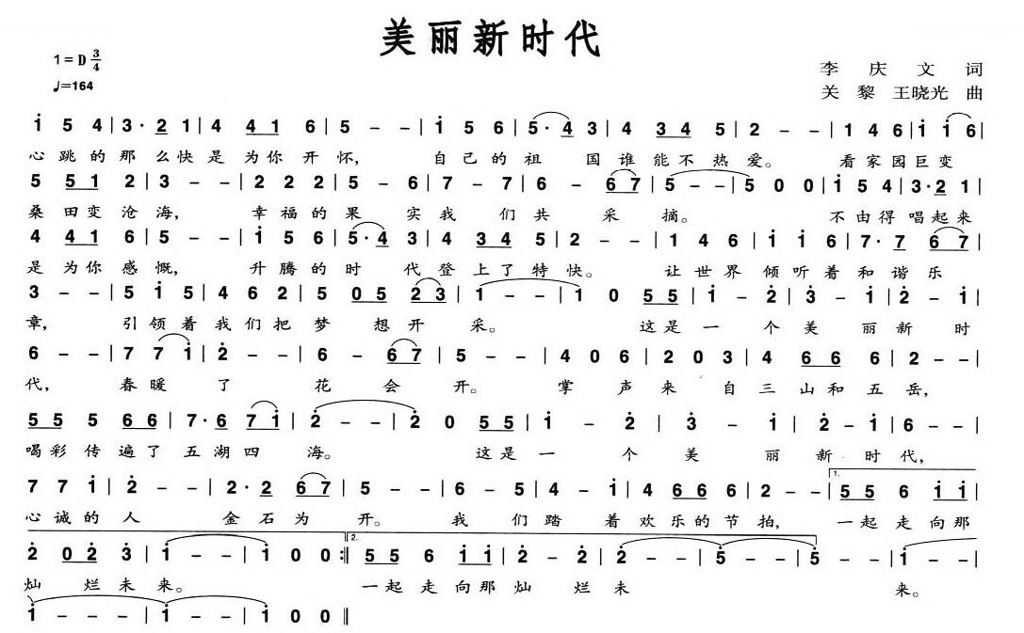 美丽新时代
1=D 3/4
♩=164
李庆文 词
关黎 王晓光 曲
i 5 4 | 3· 2 1 | 4 4 1 6 | 5 - - | i 5 6 | 5· 4 3 | 4 3 4 5 | 2 - - | 1 4 6 | i i 6 |
心跳的那么快是为你开怀， 自己的祖国谁能不热爱。 看家园巨变
5 5 1 2 | 3 - - | 2 2 2 | 5 - 6 | 7 - 7 | 6 - 6 7 | 5 - - | 5 0 0 | i 5 4 | 3· 2 1 |
桑田变沧海， 幸福的果实我们共采摘。 不由得唱起来
4 4 1 6 | 5 - - | i 5 6 | 5· 4 3 | 4 3 4 5 | 2 - - | 1 4 6 | i i 6 | 7· 7 6 7 |
是为你感慨， 升腾的时代登上了特快。 让世界倾听着和谐乐
3 - - | 5 i 5 | 4 6 2 | 5 0 5 2 3 | 1 - - | 1 0 5 5 | i - 2 | 3 - i | 2 - i |
章， 引领着我们把梦想开采。 这是一个美丽新时
6 - - | 7 7 i | 2 - - | 6 - 6 7 | 5 - - | 4 0 6 | 2 0 3 | 4 6 6 6 | 2 - - |
代， 春暖了花会开。 掌声来自三山和五岳，
5 5 5 6 6 | 7· 6 7 i | 2 - - | 2 0 5 5 | i - 2 | 3 - i | 2 - i | 6 - - |
喝彩传遍了五湖四海。 这是一个美丽新时代，
7 7 i | 2 - - | 2· 2 6 7 | 5 - - | 6 - 5 | 4 - i | 4 6 6 6 | 2 - - | 1. 5 5 6 i i |
心诚的人金石为开。 我们踏着欢乐的节拍， 一起走向那
2 0 2 3 | i - - | i 0 0 :‖ 2. 5 5 6 i i | 2 - 2 | 5 - - | 5 - - | i - - |
灿烂未来。 一起走向那灿烂未来。
i - - | i - - | i 0 0 ‖